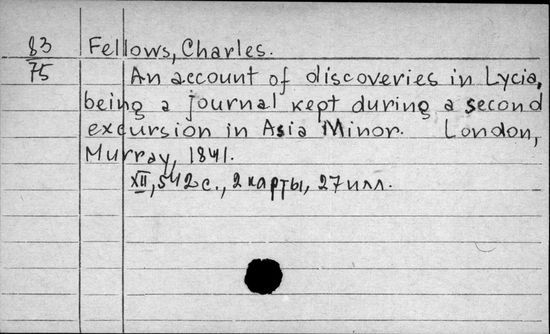 83 Fellows, Charles.
75 An account of discoveries in Lycia,
being a journal kept during a second
excursion in Asia Minor. London,
Murray, 1841.
XII, 542 с., 2 карты, 27 илл.